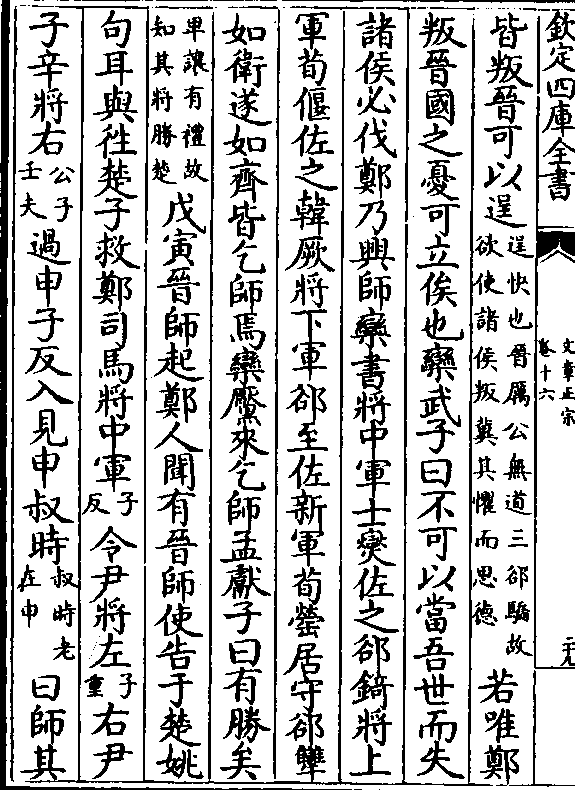 欽定四庫全書
文章正宗
卷十六
二十九
皆叛晉可以逞逞快也晉厲公無道三郤驕故欲使諸侯叛冀其懼而思德若唯鄭
叛晉國之憂可立俟也欒武子曰不可以當吾世而失
諸侯必伐鄭乃興師欒書將中軍士燮佐之郤錡將上
軍荀偃佐之韓厥將下軍郤至佐新軍荀罃居守郤犨
如衛遂如齊皆乞師焉欒黶來乞師孟獻子曰有勝矣
卑讓有禮故知其將勝楚戊寅晉師起鄭人聞有晉師使告于楚姚
句耳與徃楚子救鄭司馬將中軍子反令尹將左子重右尹
子辛將右公子壬夫過申子反入見申叔時叔時老在申曰師其